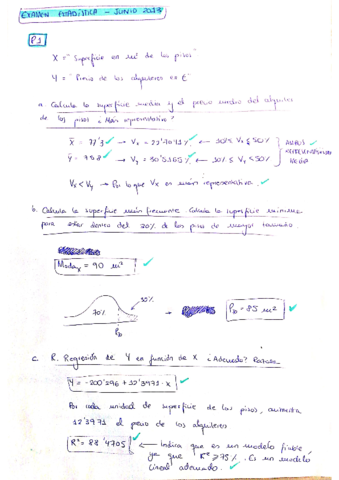 EXAMEN ESTADÍSTICA - JUNIO 2013
P1
X = "Superficie en m² de los pisos"
Y = "Precio de los alquileres en €"
a. Calcula la superficie media y el precio medio del alquiler
de los pisos ¿Más representativa?
X̄ = 77'3 → Vx =
Ȳ = 958 → Vy =
AMBAS
Vx < Vy → Por lo que Vx es más representativa.
b. Calcula la superficie más frecuente. Calcula la superficie mínima
para estar dentro del 30% de los pisos de mayor tamaño.
Modax = 90 m²
30%
70%
P70 = 85 m²
c. R. Regresión de Y en función de X ¿Adecuado?
Y = -200'296 + 12'3971 · X
Por cada unidad de superficie de los pisos, aumenta
12'3971 el precio de los alquileres
R² = 88'4705
Indica que es un modelo fiable,
ya que R² ≥ 75%. Es un modelo
lineal adecuado.